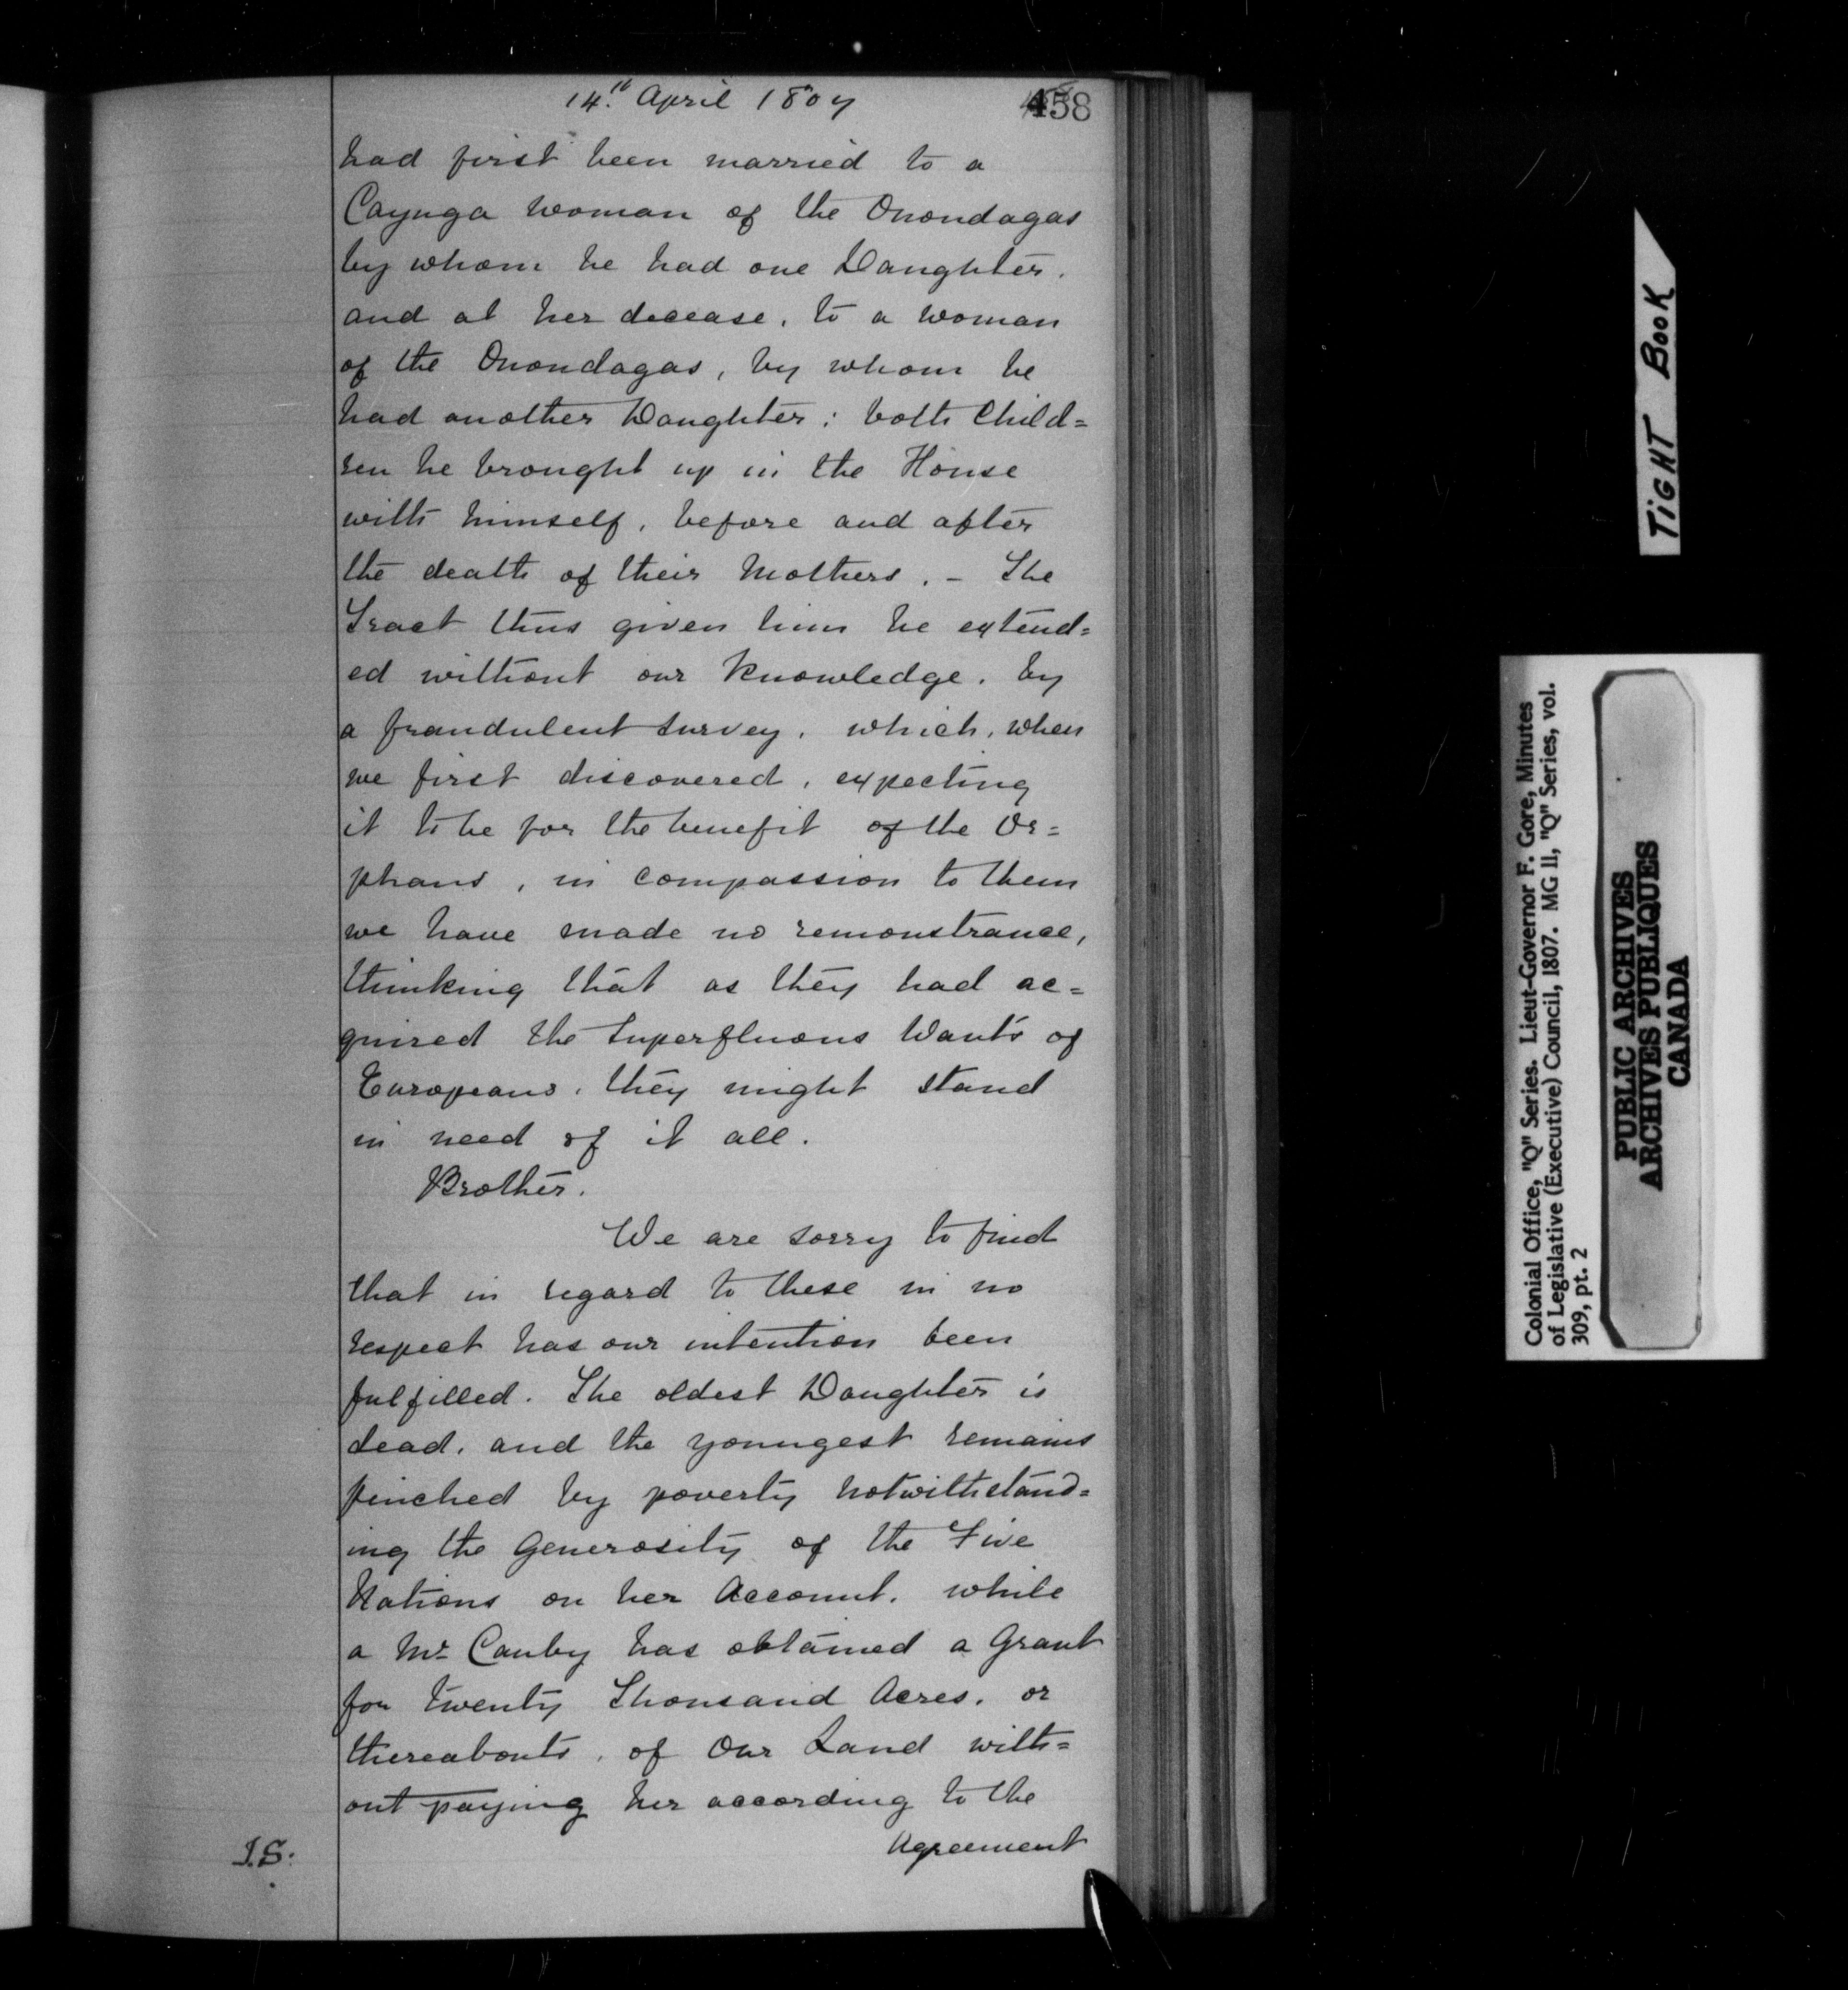 14.th April 1807
458
had first been married to a
Cayuga woman of the Onondagas
by whom he had one Daughter,
and at her decease, to a woman
of the Onondagas, by whom he
had another Daughter; both Child=
ren he brought up in the House
with himself, before and after
the death of their Mothers. – The
Tract thus given him he extend=
ed without our knowledge, by
a fraudulent survey, which, when
we first discovered, expecting
it to be for the benefit of the Or=
phans, in compassion to them
we have made no remonstrance,
thinking that as they had ac=
quired the superfluous Wants of
Europeans, they might stand
in need of it all.
Brother,
We are sorry to find
that in regard to these in no
respect has our intention been
fulfilled. The oldest Daughter is
dead, and the youngest remains
pinched by poverty notwithstand=
ing the Generosity of the Five
Nations on her Account, while
a Mr Canby has obtained a Grant
for twenty Thousand Acres, or
thereabouts, of Our Land with=
out paying her according to the
Agreement
J.S.
TIGHT BOOK
Colonial Office, "Q" Series. Lieut-Governor F. Gore, Minutes
of Legislative (Executive) Council, 1807. MG 11, "Q" Series, vol.
309, pt. 2
PUBLIC ARCHIVES
ARCHIVES PUBLIQUES
CANADA